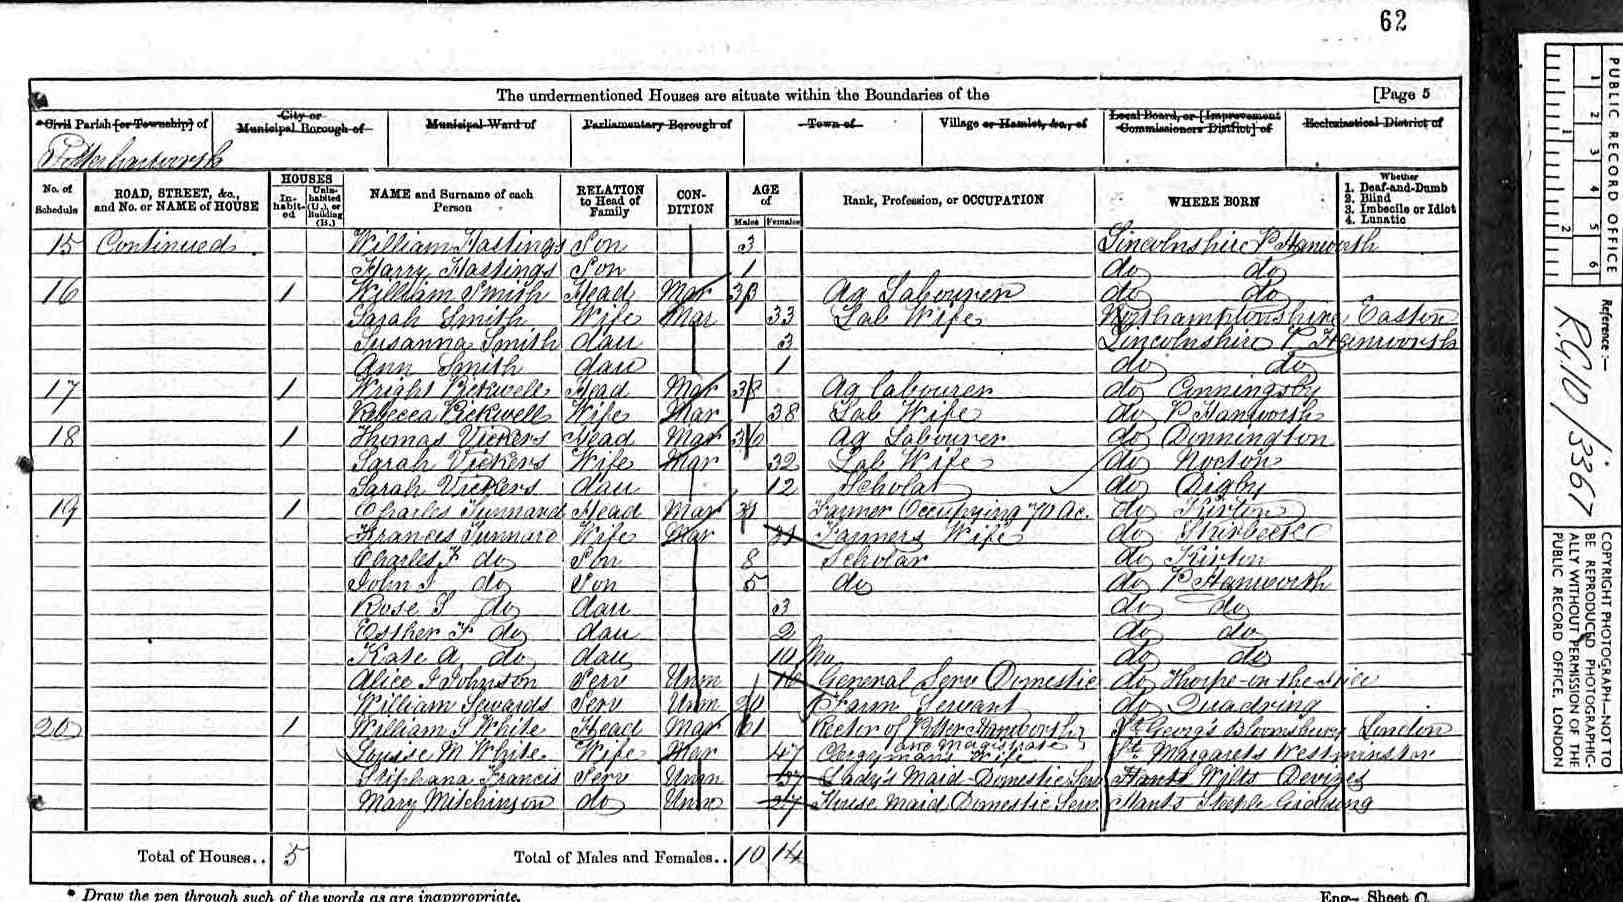 62
The undermentioned Houses are situate within the Boundaries of the [Page 5
Civil Parish [or Township] of City or Municipal Borough of Municipal Ward of Parliamentary Borough of Town of Village or Hamlet, &c., of Local Board, or [Improvement Commissioners District] of Ecclesiastical District of
Potterhanworth
No. of Schedule ROAD, STREET, &c., and No. or NAME of HOUSE HOUSES In-habit-ed Unin-habited (U.), or Building (B.) NAME and Surname of each Person RELATION to Head of Family CON-DITION AGE of Males Females Rank, Profession, or OCCUPATION WHERE BORN Whether 1. Deaf-and-Dumb 2. Blind 3. Imbecile or Idiot 4. Lunatic
15 Continued William Hastings Son 3 Lincolnshire P Hanworth
Harry Hastings Son 1 do do
16 1 William Smith Head Mar 33 Ag Labourer do do
Sarah Smith Wife Mar 33 Lab Wife Northamptonshire Easton
Susanna Smith dau 3 Lincolnshire P Hanworth
Ann Smith dau 1 do do
17 1 Wright Pickwell Head Mar 38 Ag labourer do Conningsby
Rebecca Pickwell Wife Mar 38 Lab Wife do P Hanworth
18 1 Thomas Vickers Head Mar 36 Ag Labourer do Donnington
Sarah Vickers Wife Mar 32 Lab Wife do Nocton
Sarah Vickers dau 12 Scholar do Digby
19 1 Charles Tunnard Head Mar 31 Farmer Occupying 70 Ac. do Kirton
Frances Tunnard Wife Mar 31 Farmers Wife do Skirbeck
Charles F do Son 8 Scholar do Kirton
John T do Son 5 do do P Hanworth
Rose do dau 3 do do
Esther F do dau 2 do do
Kate A do dau 10 Mo do do
Alice Johnson Serv Unm 16 General Serv Domestic do Thorpe-on the
William Sewards Serv Unm 20 Farm Servant do Quadring
20 1 William S White Head Mar 61 Rector of Potter Hanworth and Magistrate St George's Bloomsbury London
Louise M White Wife Mar 47 Clergyman's Wife St Margarets Westminster
Stephana Francis Serv Unm Lady's Maid Domestic Serv Hants Wilts Devizes
Mary Mitchinson do Unm 27 House Maid Domestic Serv Hants Steeple Gidding
Total of Houses.. 5 Total of Males and Females.. 10 14
* Draw the pen through such of the words as are inappropriate. Eng— Sheet C.
PUBLIC RECORD OFFICE
1 2 3 4 5 6
1 2
Reference:—
R.G.10/3367
COPYRIGHT PHOTOGRAPH—NOT TO BE REPRODUCED PHOTOGRAPHICALLY WITHOUT PERMISSION OF THE PUBLIC RECORD OFFICE, LONDON